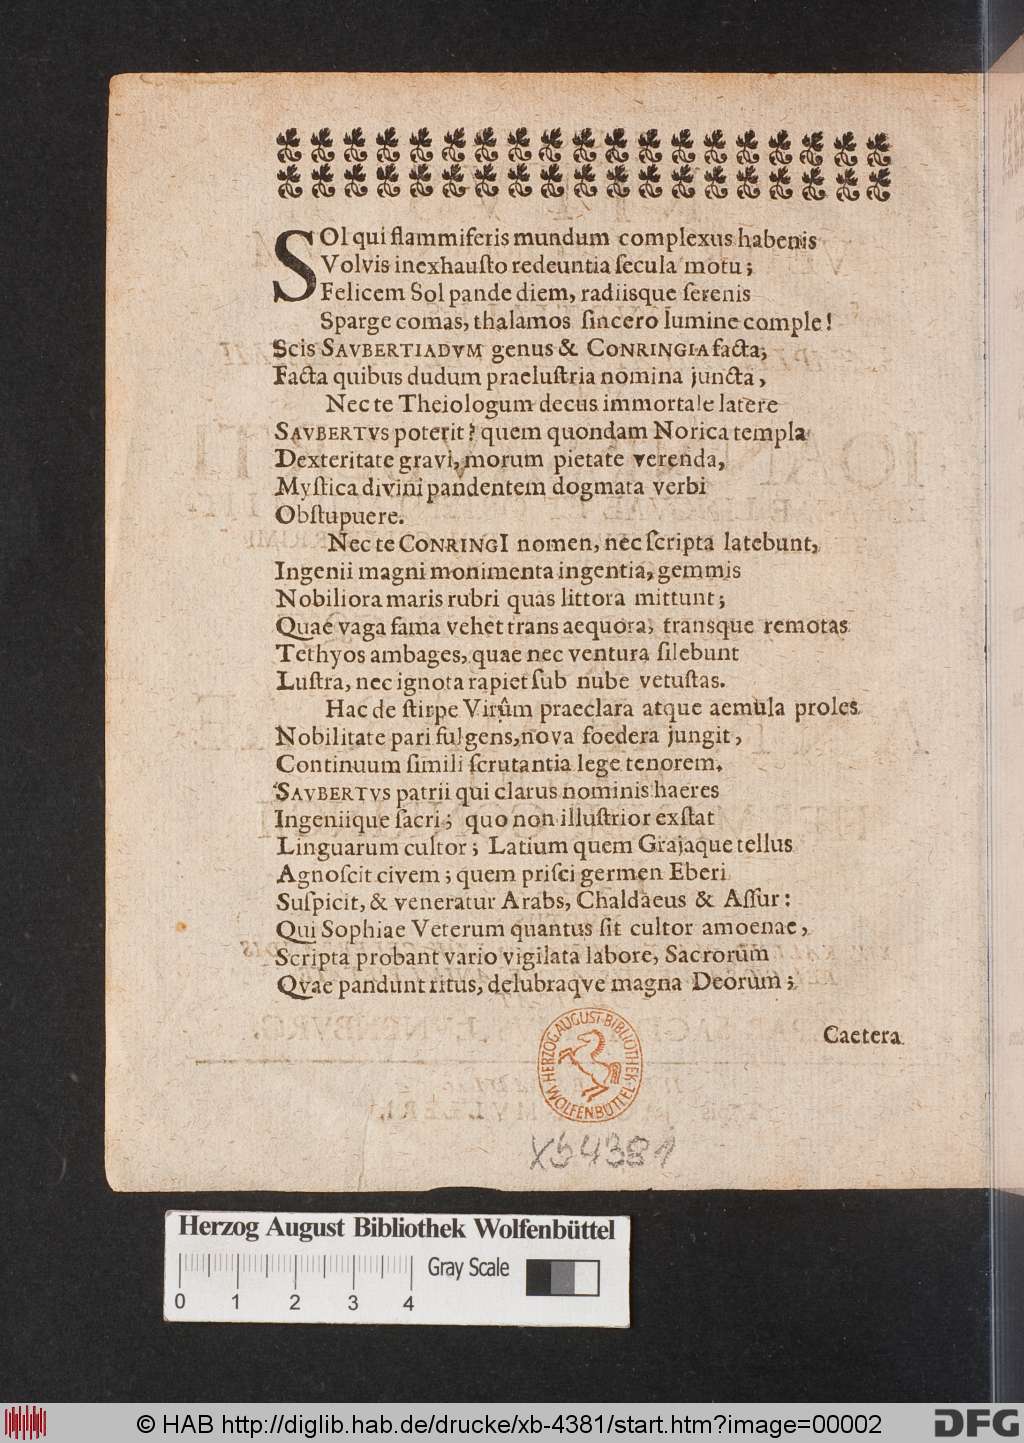 SOl qui flammiferis mundum complexus habenis
Volvis inexhauſto redeuntia ſecula motu;
Felicem Sol pande diem, radiisque ſerenis
Sparge comas, thalamos ſincero lumine comple!
Scis SAVBERTIADVM genus & CONRINGIA facta;
Facta quibus dudum praeluſtria nomina juncta,
Nec te Theiologum decus immortale latere
SAVBERTVS poterit? quem quondam Norica templa
Dexteritate gravi, morum pietate verenda,
Myſtica divini pandentem dogmata verbi
Obſtupuere.
Nec te CONRINGI nomen, nec ſcripta latebunt,
Ingenii magni monimenta ingentia, gemmis
Nobiliora maris rubri quas littora mittunt;
Quae vaga fama vehet trans aequora, transque remotas
Tethyos ambages, quae nec ventura ſilebunt
Luſtra, nec ignota rapiet ſub nube vetuſtas.
Hac de ſtirpe Virûm praeclara atque aemula proles
Nobilitate pari fulgens, nova foedera jungit,
Continuum ſimili ſcrutantia lege tenorem.
SAVBERTVS patrii qui clarus nominis haeres
Ingeniique ſacri; quo non illuſtrior exſtat
Linguarum cultor; Latium quem Grajaque tellus
Agnoſcit civem; quem priſci germen Eberi
Suſpicit, & veneratur Arabs, Chaldaeus & Aſſur:
Qui Sophiae Veterum quantus ſit cultor amoenae,
Scripta probant vario vigilata labore, Sacrorum
Qvae pandunt ritus, delubraqve magna Deorum;
Caetera
HERZOG AUGUST-BIBLIOTHEK-WOLFENBÜTTEL
Xb 4381
Herzog August Bibliothek Wolfenbüttel
Gray Scale
0 1 2 3 4
© HAB http://diglib.hab.de/drucke/xb-4381/start.htm?image=00002
DFG